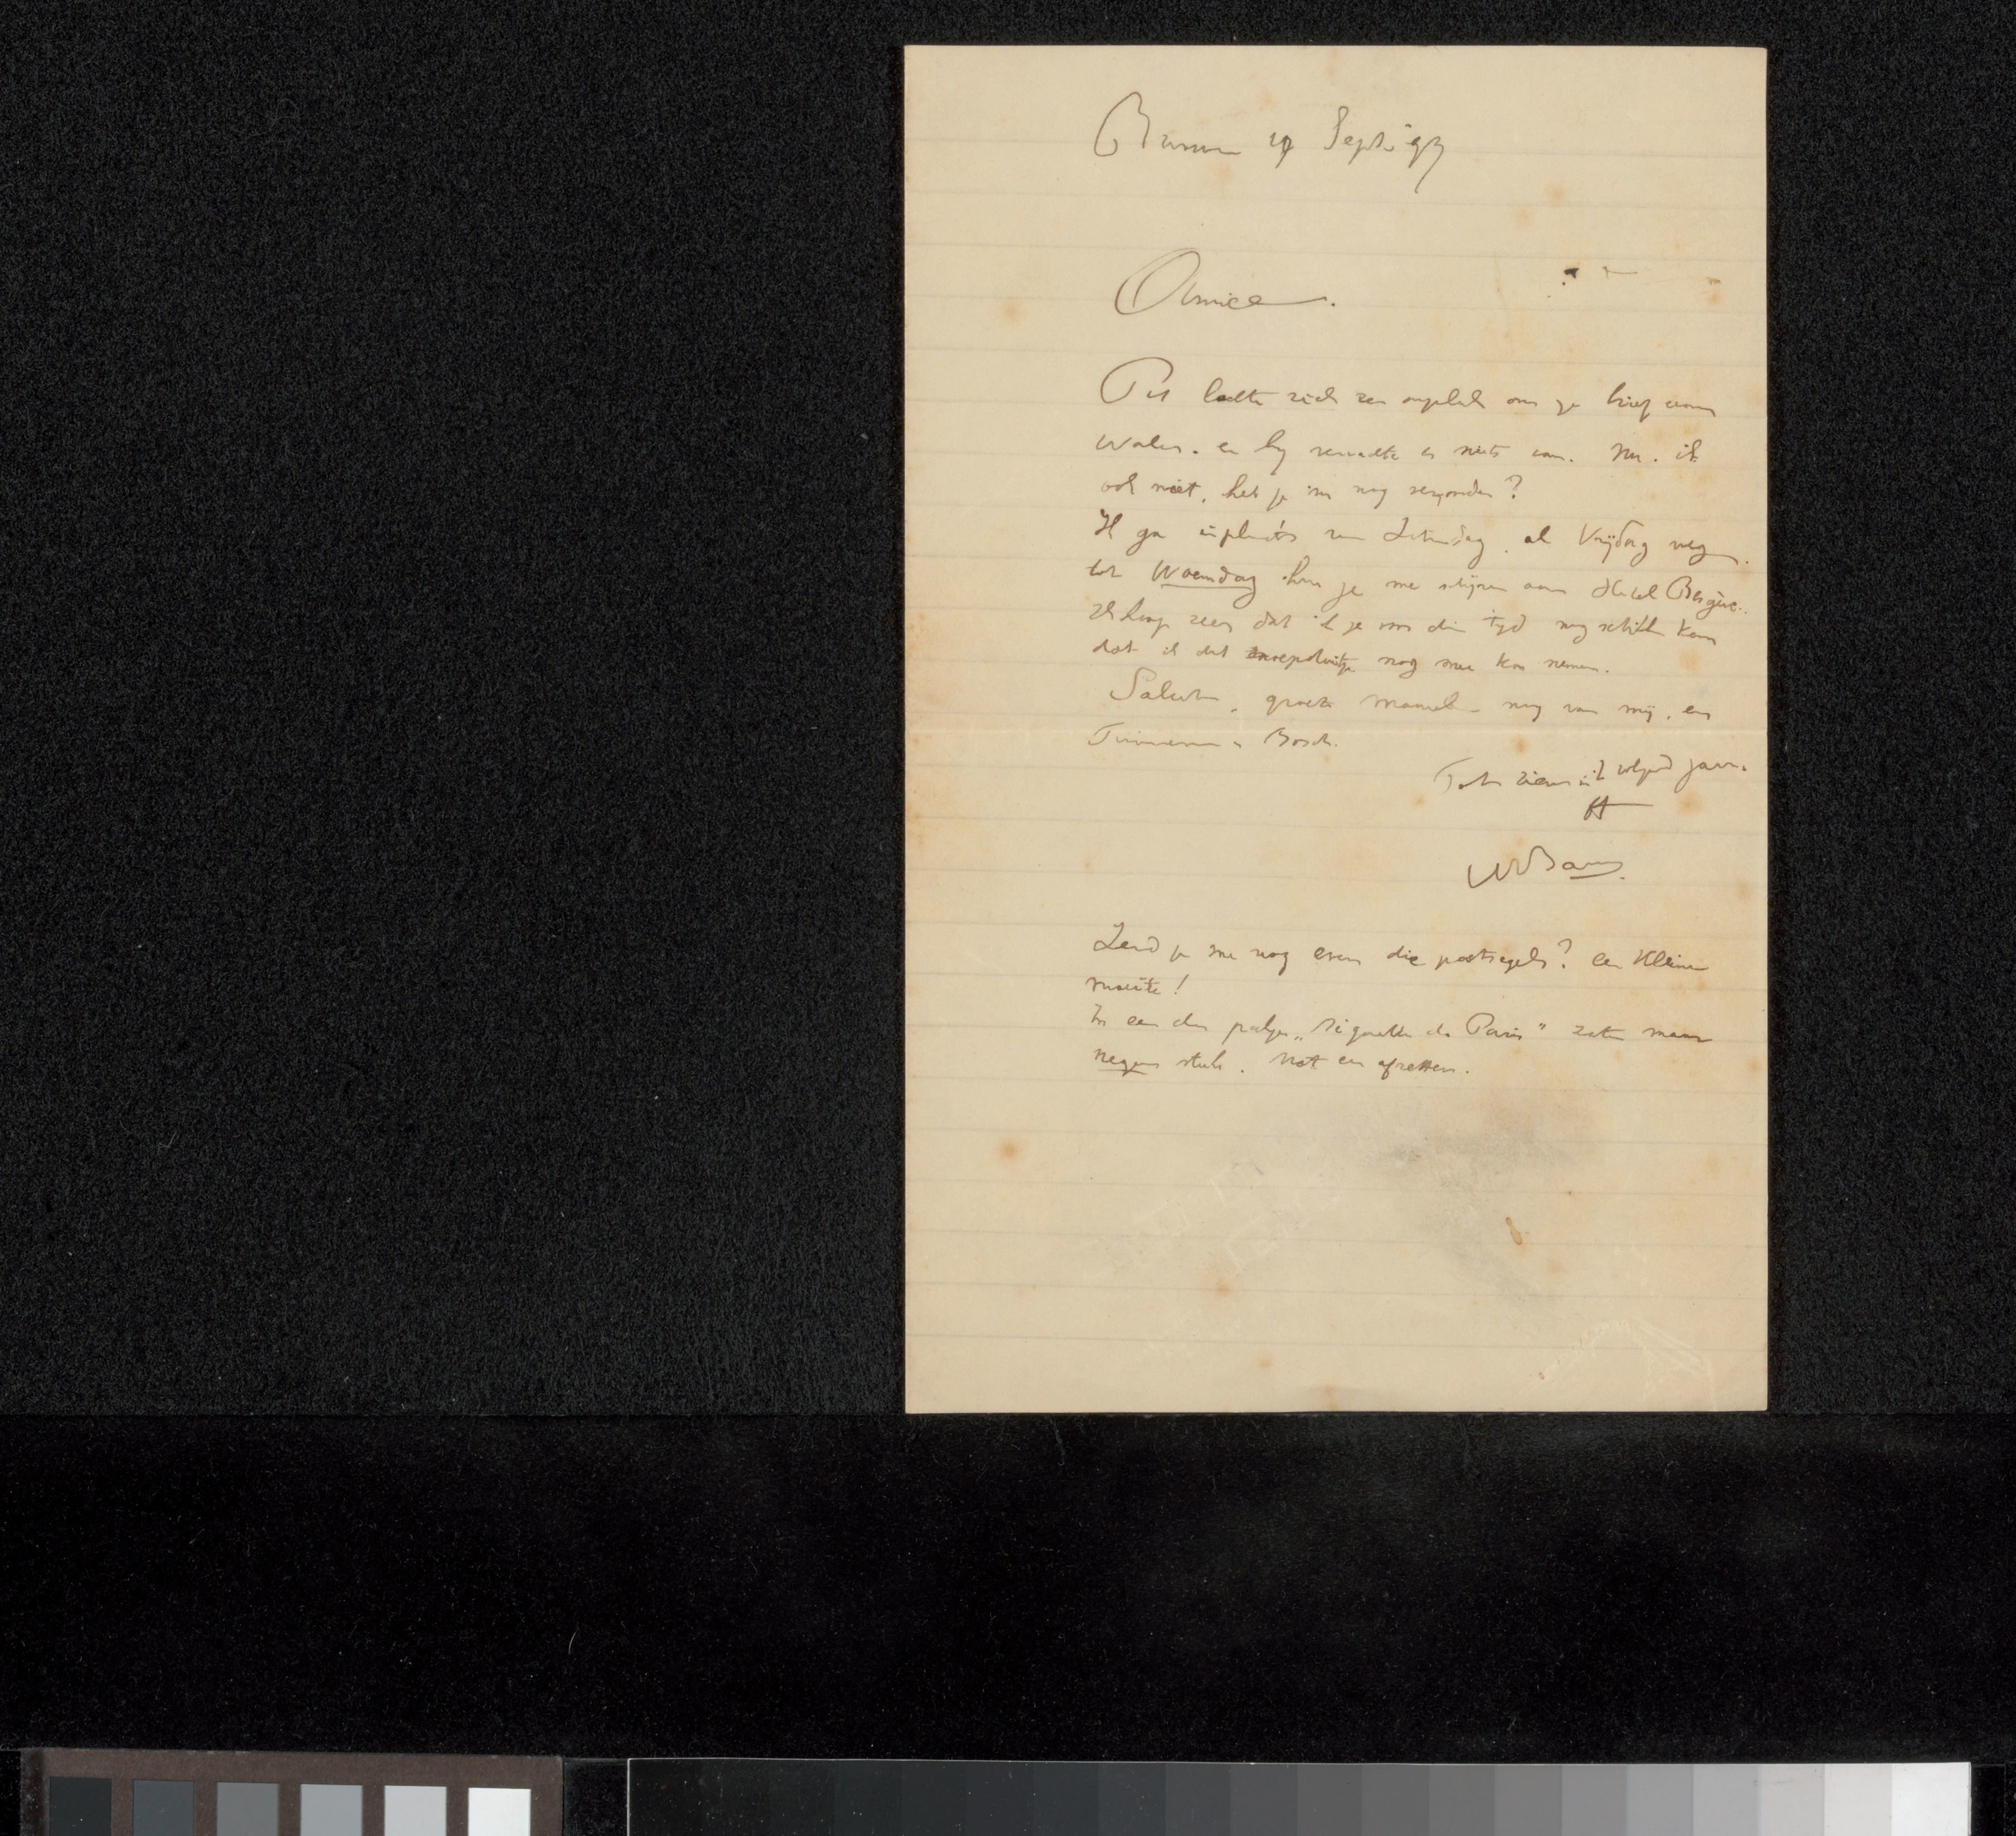 Bussum Sept. 93
Amice.
Pit lachte zich een ongeluk om je brief aan
Wales. en hij snapte er niets van. Nu. ik
ook niet, heb je 'm nog gezonden?
Ik ga inplaats van Zaterdag, al Vrijdag weg.
tot Woensdag kun je me schrijven aan Hotel Bergère.
Ik hoop zeer dat ik je om die tijd nog schikken kan
dat ik dat nog mee kan nemen.
Saluut, groet nog van mij, en
Timmerman en Bosch.
Tot ziens in 't volgend jaar.
Zend je me nog even die postzegels? een kleine
moeite!
In een der pakjes „Cigarettes de Paris" zaten maar
negen stuks. Wat een afzetters.